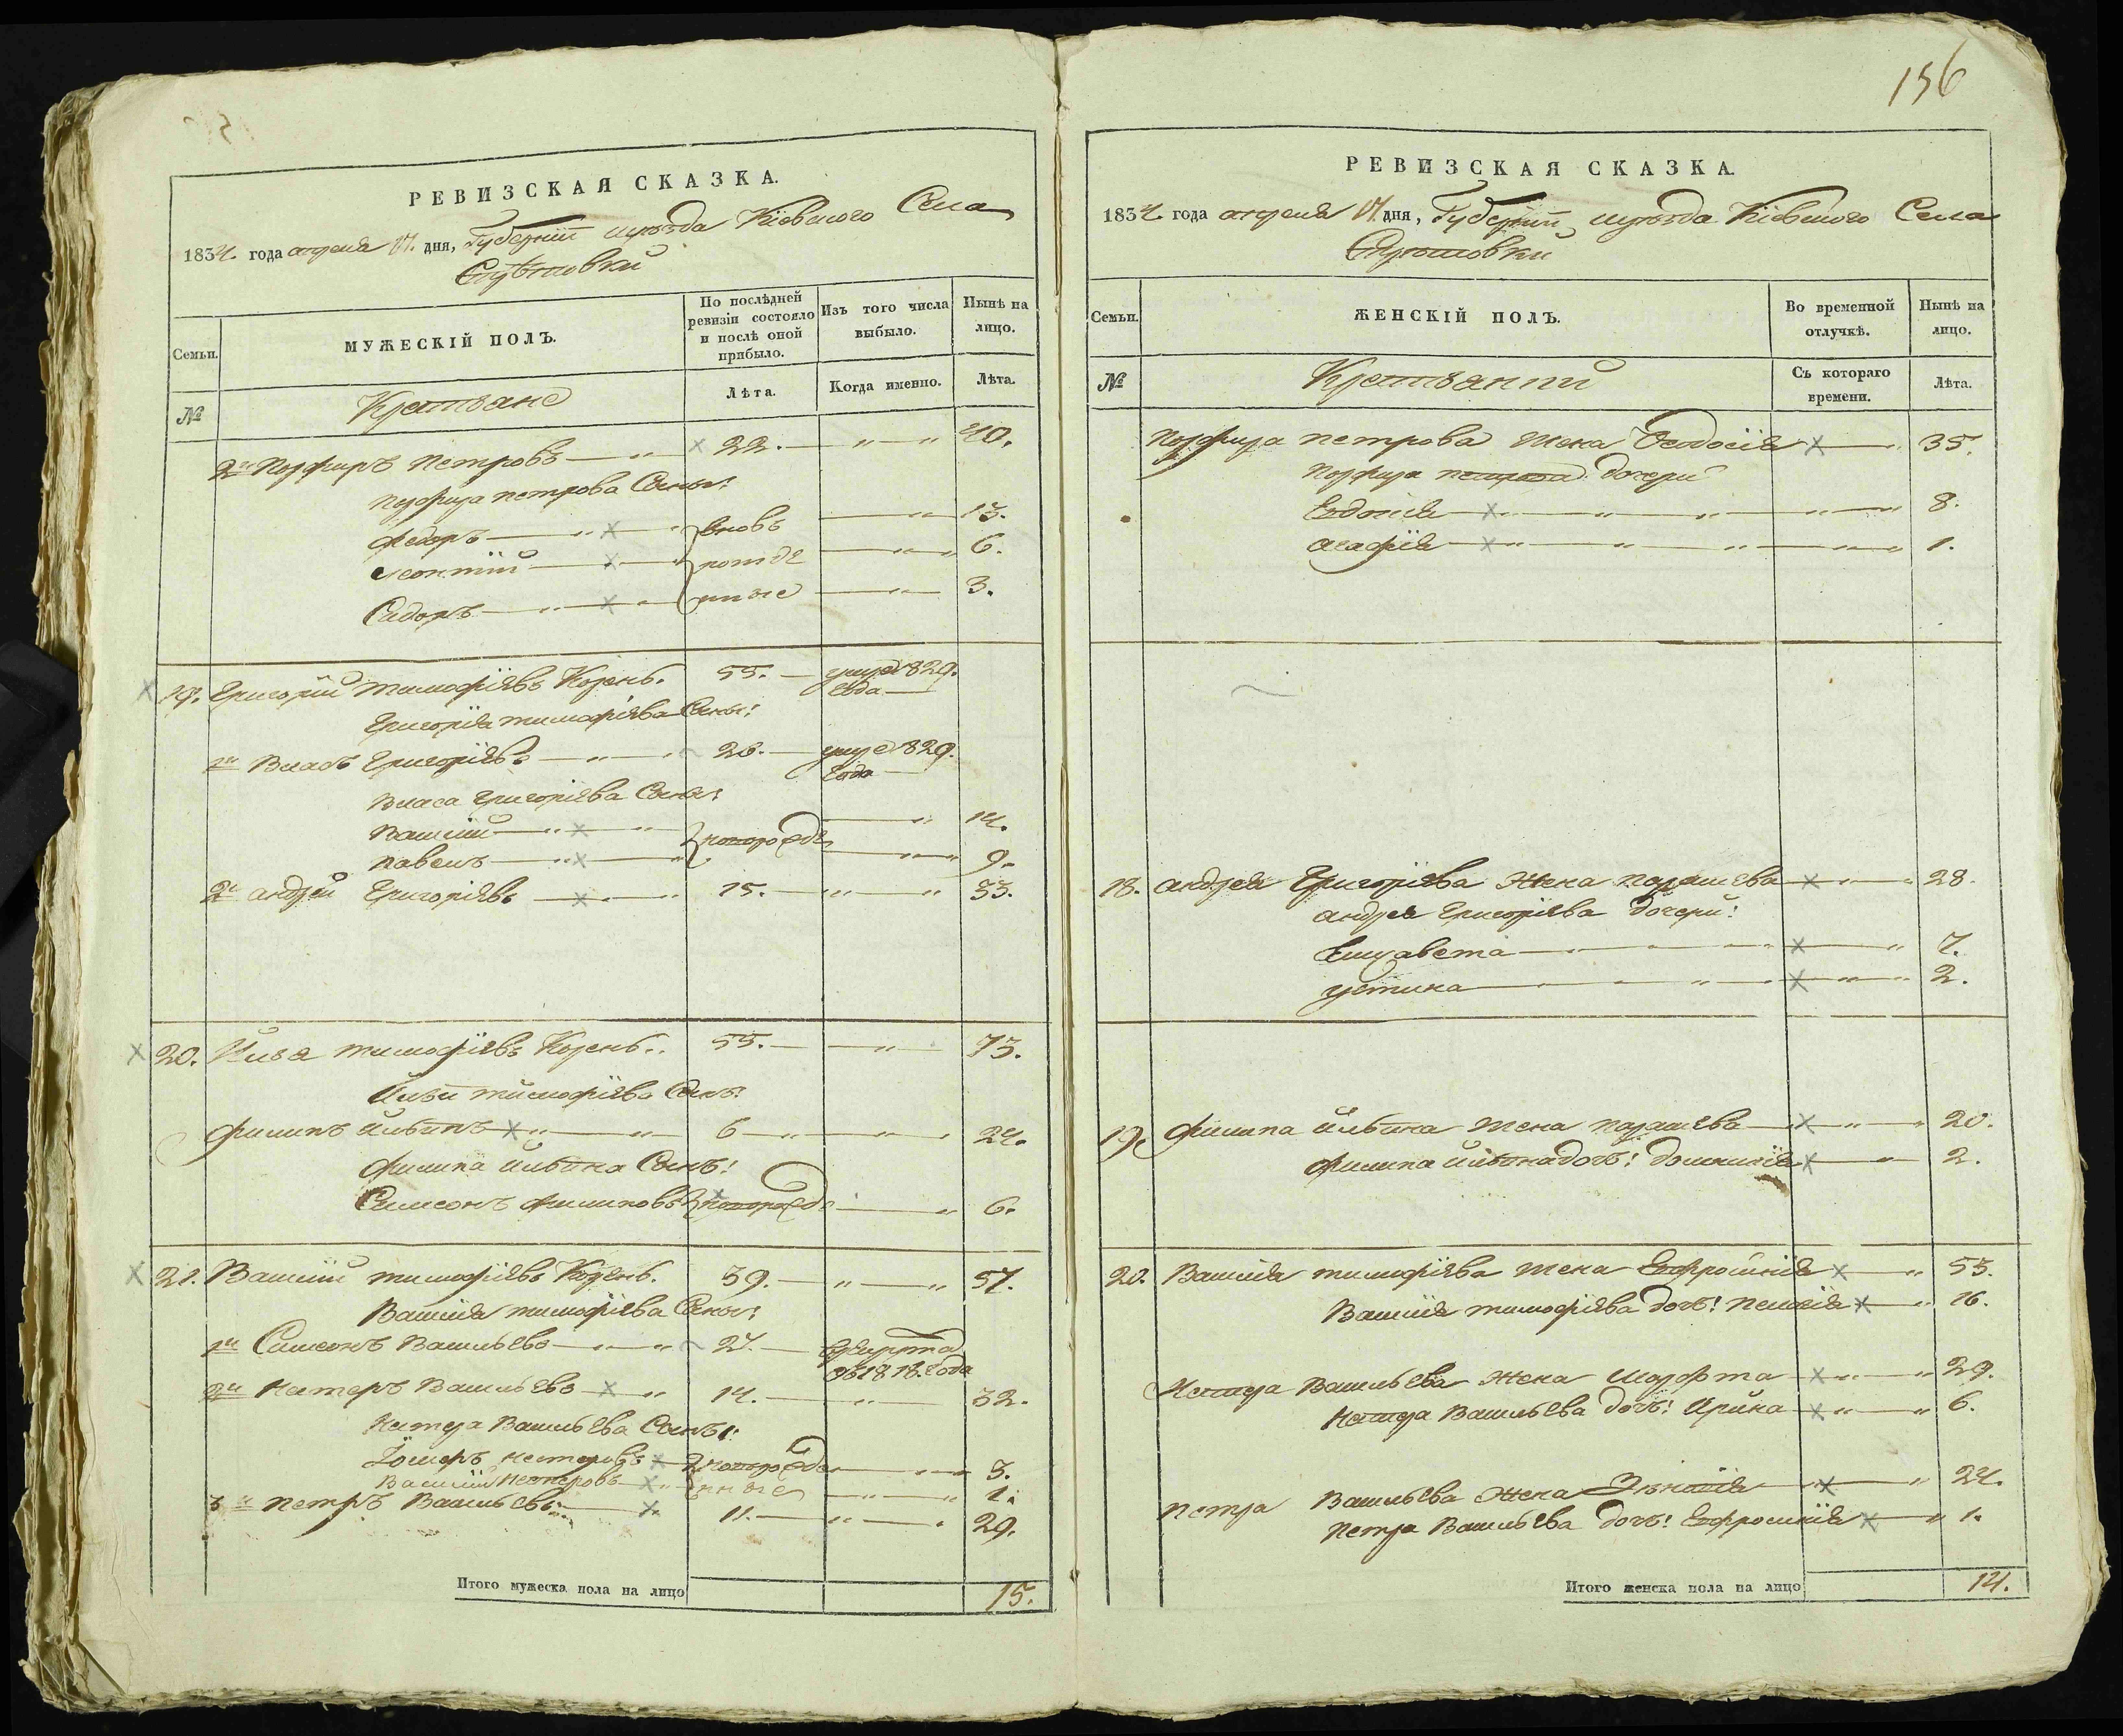 156
РЕВИЗСКАЯ СКАЗКА.
1834. года апреля 17. дня, Губернии уезда Кіевского Села
МУЖЕСКІЙ ПОЛЪ.
Семьи.
По послѣдней ревизіи состояло и послѣ оной прибыло.
Изъ того числа выбыло.
Нынѣ на лицо.
№
Крестьяне
Лѣта.
Когда именно.
Лѣта.
2й Порфиръ Петровъ 22. 40.
Порфира Петрова Сыны:
Федоръ вновь 13.
Леонтій рожде 6.
Сидоръ нные 3.
19. Григорій Тимофіевъ Корень. 55. умре 1829. Года
Григорія Тимофіева Сыны:
1й Власъ Григоріевъ 26. умре 1829. Года
Власа Григоріева Сыны:
Василій новорожде 14.
Павелъ 9.
2й Андрей Григоріевъ 15. 33.
20. Илья Тимофіевъ Корень. 55. 73.
Ильи Тимофіева Сынъ:
Филипъ Ильинъ 6 24.
Филипа Ильина Сынъ:
Самсонъ Филиповъ новорожде 6.
21. Василій Тимофіевъ Корень. 39. 57.
Василія Тимофіева Сыны:
1й Самсонъ Васильевъ 27. въ рекруты въ 1818. Года
2й Нестеръ Васильевъ 14. 32.
Нестера Васильева Сыны:
Нестеровъ новорожде 3.
Василій Нестеровъ нные 1.
3й Петръ Васильевъ 11. 29.
Итого мужеска пола на лицо 15.
РЕВИЗСКАЯ СКАЗКА.
1834. года апреля 17. дня, Губернии уезда Кіевского Села
Семьи.
ЖЕНСКІЙ ПОЛЪ.
Во временной отлучкѣ.
Нынѣ на лицо.
№
Крестьянки
Съ котораго времени.
Лѣта.
Порфира Петрова жена Феодосія 35.
Порфира Петрова дочери
Евдокія 8.
Агафія 1.
18. Андрея Григоріева жена Параскева 28.
Андрея Григоріева дочери:
Елисавета 7.
Устина 2.
19. Филипа Ильина жена Параскева 20.
Филипа Ильина дочь: Домникія 2.
20. Василія Тимофіева жена Евфросинія 55.
Василія Тимофіева дочь: Пелагія 16.
Нестера Васильева жена Марфа 29.
Нестера Васильева дочь: Ирина 6.
Петра Васильева жена 24.
Петра Васильева дочь: Евфросинія 1.
Итого женска пола на лицо 14.